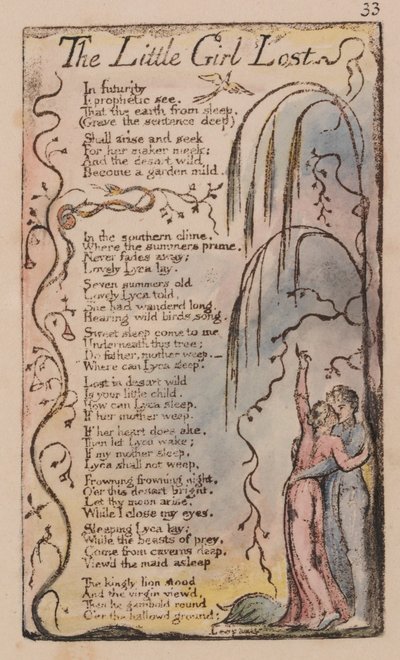 33
The Little Girl Lost
In futurity
I prophetic see.
That the earth from sleep.
(Grave the sentence deep)
Shall arise and seek
For her maker meek:
And the desart wild
Become a garden mild.
In the southern clime.
Where the summers prime.
Never fades away;
Lovely Lyca lay.
Seven summers old
Lovely Lyca told,
She had wanderd long.
Hearing wild birds song.
Sweet sleep come to me
Underneath this tree;
Do father, mother weep.—
Where can Lyca sleep.
Lost in desart wild
Is your little child.
How can Lyca sleep.
If her mother weep.
If her heart does ake.
Then let Lyca wake;
If my mother sleep.
Lyca shall not weep.
Frowning frowning night.
O'er this desart bright.
Let thy moon arise.
While I close my eyes.
Sleeping Lyca lay;
While the beasts of prey,
Come from caverns deep,
View'd the maid asleep
The kingly lion stood
And the virgin view'd,
Then he gambold round
O'er the hallowd ground;
Leopards